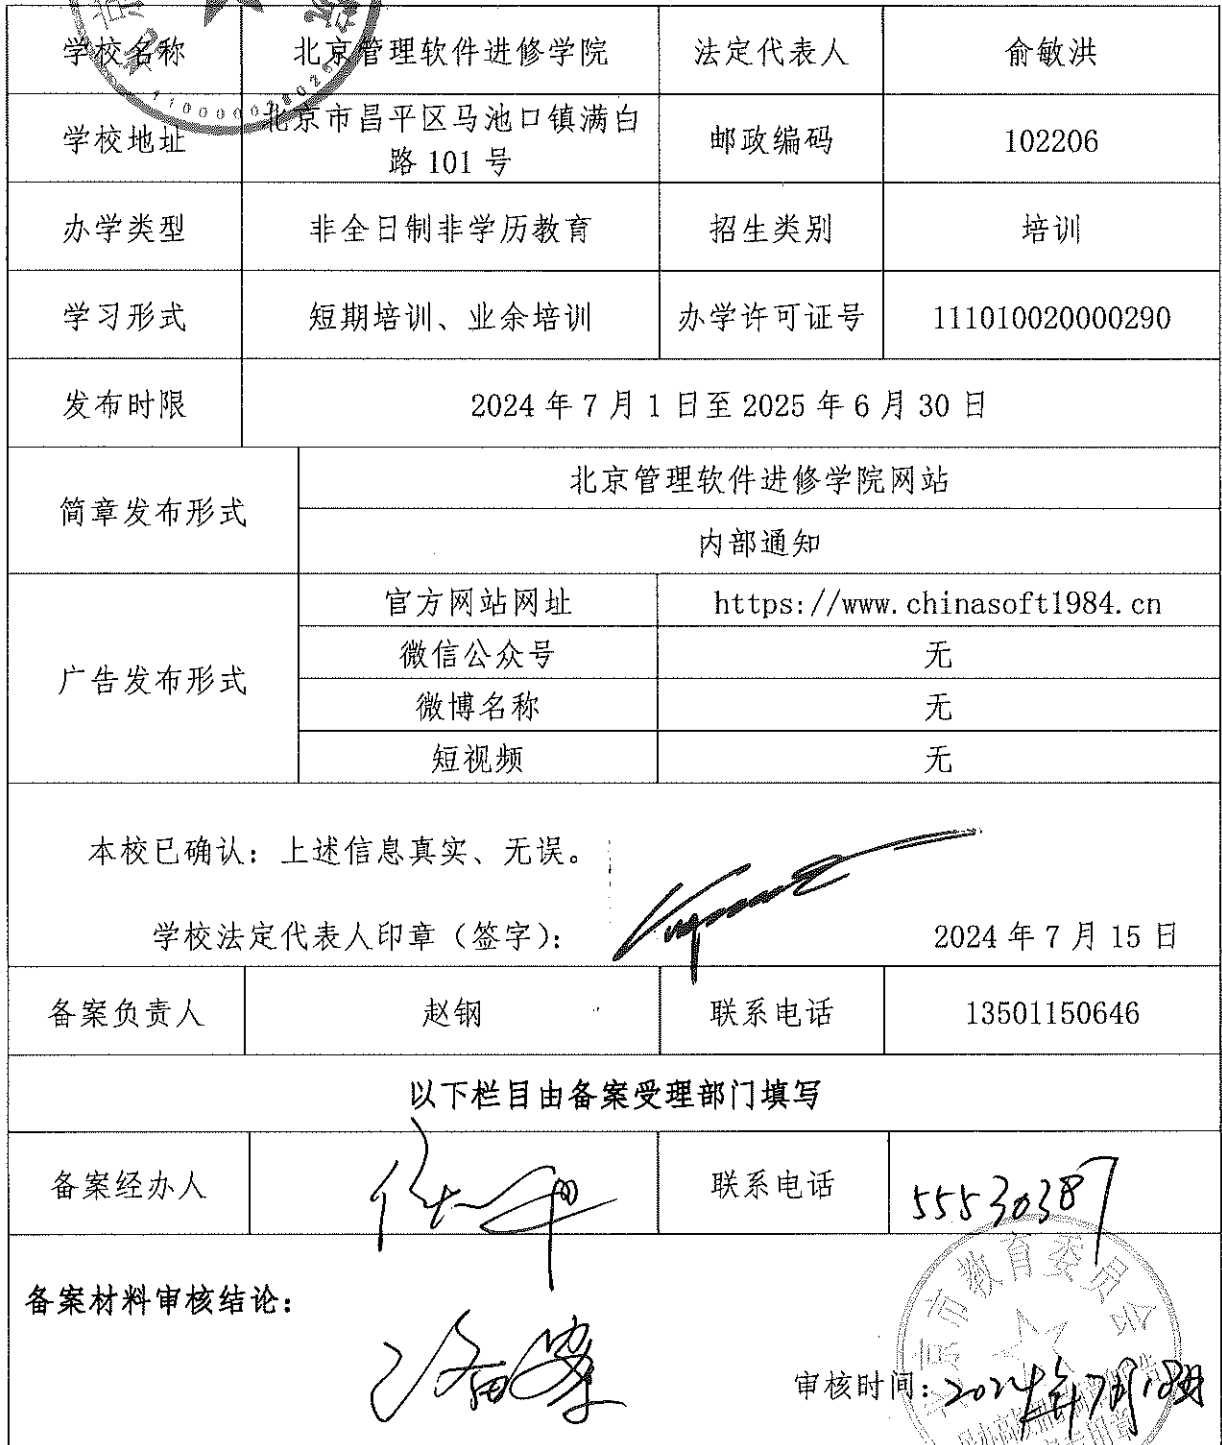 学校名称 北京管理软件进修学院 法定代表人 俞敏洪
学校地址 北京市昌平区马池口镇满白 邮政编码 102206
路 101 号
办学类型 非全日制非学历教育 招生类别 培训
学习形式 短期培训、业余培训 办学许可证号 111010020000290
发布时限 2024 年 7 月 1 日至 2025 年 6 月 30 日
简章发布形式 北京管理软件进修学院网站
内部通知
广告发布形式 官方网站网址 https://www.chinasoft1984.cn
微信公众号 无
微博名称 无
短视频 无
本校已确认：上述信息真实、无误。
学校法定代表人印章（签字）： 2024 年 7 月 15 日
备案负责人 赵钢 联系电话 13501150646
以下栏目由备案受理部门填写
备案经办人 联系电话 55530387
备案材料审核结论： 已备案
审核时间：2024年7月18日
北京市教育委员会